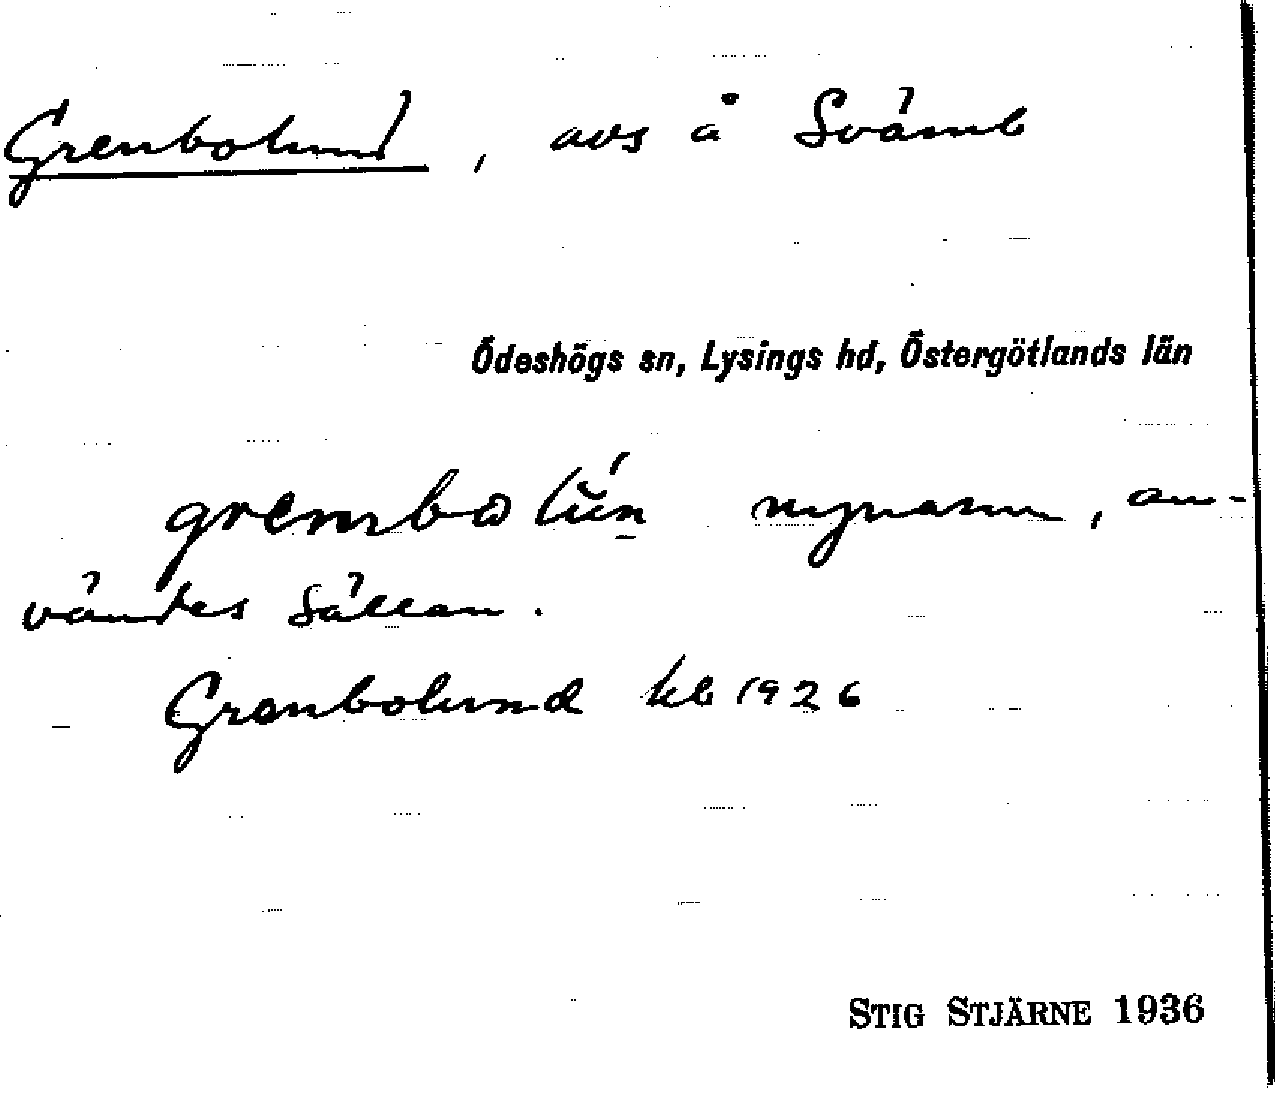 Grenbolund, avs å Svämb
Ödeshögs sn, Lysings hd, Östergötlands län
nynamn, an-
vändes sällan.
Grenbolund kb 1926
STIG STJÄRNE 1936